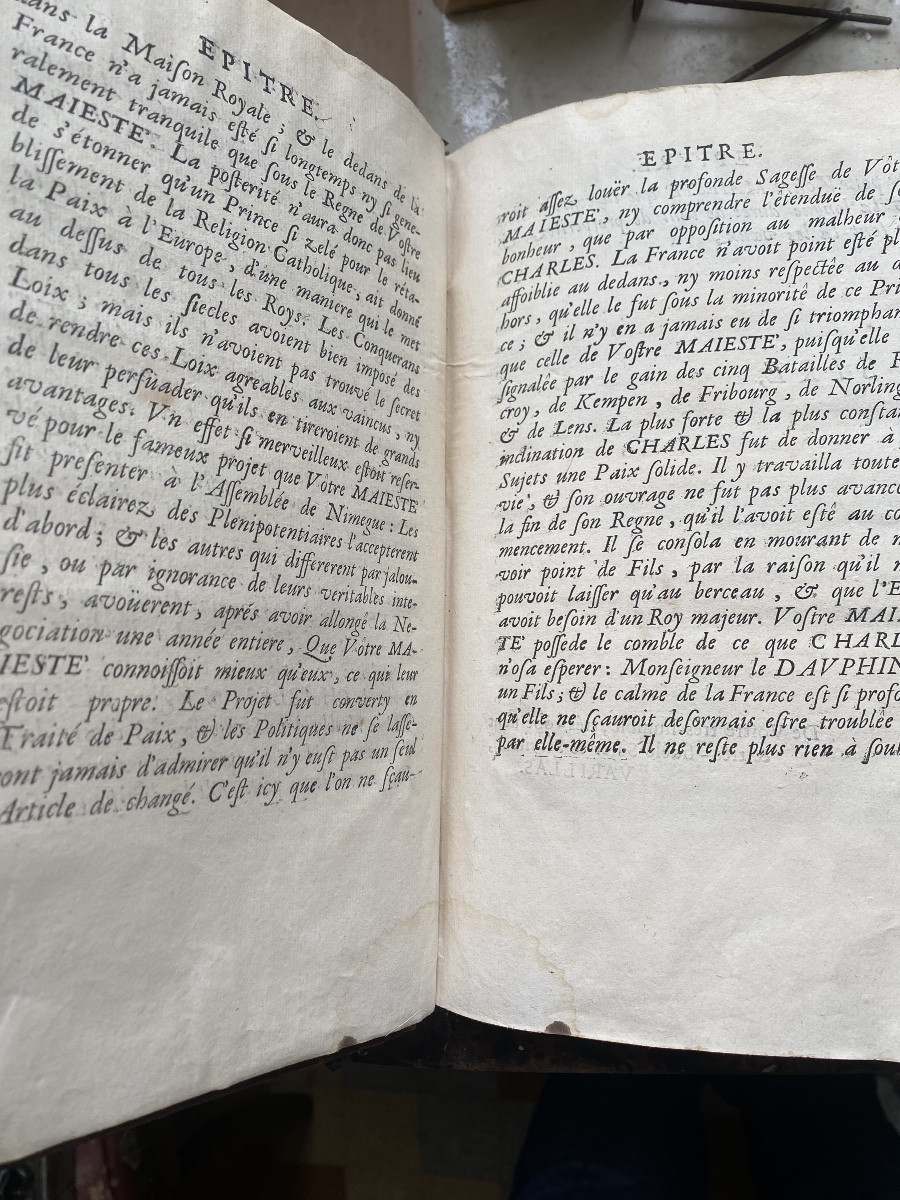 EPITRE.
dans la Maiſon Royale ; & le dedans de la
France n'a jamais eſté ſi longtemps ny ſi gene-
ralement tranquile que ſous le Regne de Voſtre
MAIESTE'. La poſterité n'aura donc pas lieu
de s'étonner qu'un Prince ſi zelé pour le réta-
bliſſement de la Religion Catholique, ait donné
la Paix à l'Europe, d'une maniere qui le met
au deſſus de tous les Roys. Les Conquerans
dans tous les ſiecles avoient bien impoſé des
Loix ; mais ils n'avoient pas trouvé le ſecret
de rendre ces Loix agreables aux vaincus, ny
de leur perſuader qu'ils en tireroient de grands
avantages. Vn effet ſi merveilleux eſtoit reſer-
vé pour le fameux projet que Vôtre MAIESTE'
fit preſenter à l'Aſſemblée de Nimegue : Les
plus éclairez des Plenipotentiaires l'accepterent
d'abord ; & les autres qui differerent par jalou-
ſie, ou par ignorance de leurs veritables inte-
reſts, avoüerent, aprés avoir allongé la Ne-
gociation une année entiere, Que Vôtre MA-
IESTE' connoiſſoit mieux qu'eux, ce qui leur
eſtoit propre. Le Projet fut converty en
Traité de Paix, & les Politiques ne ſe laſſe-
ont jamais d'admirer qu'il n'y euſt pas un ſeul
Article de changé. C'eſt icy que l'on ne ſçau-
EPITRE.
roit aſſez louër la profonde Sageſſe de Vôt
MAIESTE', ny comprendre l'étenduë de ſo
bonheur, que par oppoſition au malheur
CHARLES. La France n'avoit point eſté pl
affoiblie au dedans, ny moins reſpectée au d
hors, qu'elle le fut ſous la minorité de ce Pri
ce ; & il n'y en a jamais eu de ſi triomphan
que celle de Voſtre MAIESTE', puiſqu'elle
ſignalée par le gain des cinq Batailles de R
croy, de Kempen, de Fribourg, de Norling
& de Lens. La plus forte & la plus conſta
inclination de CHARLES fut de donner à
Sujets une Paix ſolide. Il y travailla toute
vie, & ſon ouvrage ne fut pas plus avanc
la fin de ſon Regne, qu'il l'avoit eſté au co
mencement. Il ſe conſola en mourant de n
voir point de Fils, par la raiſon qu'il n
pouvoit laiſſer qu'au berceau, & que l'E
avoit beſoin d'un Roy majeur. Voſtre MAI
TE' poſſede le comble de ce que CHARL
n'oſa eſperer : Monſeigneur le DAVPHIN
un Fils ; & le calme de la France eſt ſi profo
qu'elle ne ſçauroit deſormais eſtre troublée
par elle-même. Il ne reſte plus rien à ſou